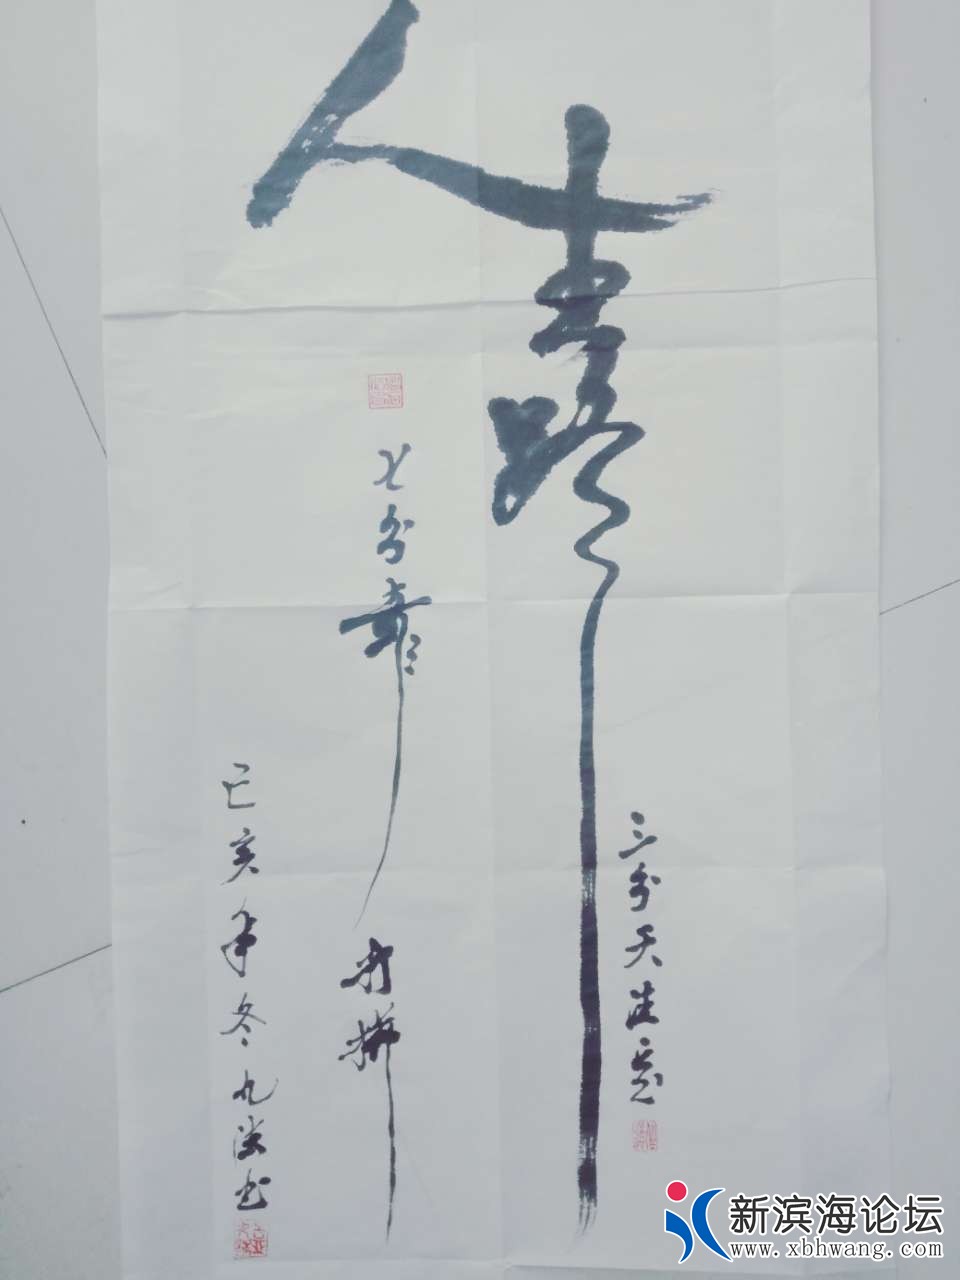 人生路
三分天注定
七分靠
打拼
己亥年冬九溪书
新滨海论坛
www.xbhwang.com